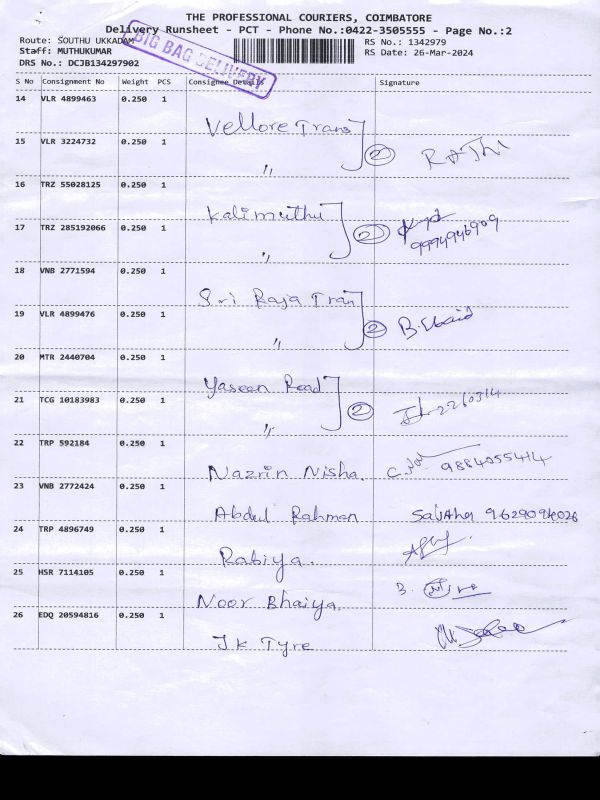 THE PROFESSIONAL COURIERS, COIMBATORE
Delivery Runsheet - PCT - Phone No.:0422-3505555 - Page No.:2
Route: SOUTHU UKKADAM
RS No.: 1342979
Staff: MUTHUKUMAR
RS Date: 26-Mar-2024
DRS No.: DCJB134297902
BIG BAG DELIVERY
S No Consignment No Weight PCS Consignee Details Signature
14 VLR 4899463 0.250 1
Vellore Trans
15 VLR 3224732 0.250 1
" 2 RATHI
16 TRZ 55028125 0.250 1
Kalimuthu
17 TRZ 285192066 0.250 1
" 2 9994946909
18 VNB 2771594 0.250 1
Sri Raja Tran
19 VLR 4899476 0.250 1
" 2 B. Ubaid
20 MTR 2440704 0.250 1
Yaseen Road
21 TCG 10183983 0.250 1
" 2
22 TRP 592184 0.250 1
Nazrin Nisha. 9884055414
23 VNB 2772424 0.250 1
Abdul Rahman
24 TRP 4896749 0.250 1
Rabiya.
25 HSR 7114105 0.250 1
Noor Bhaiya.
26 EDQ 20594816 0.250 1
J.k Tyre